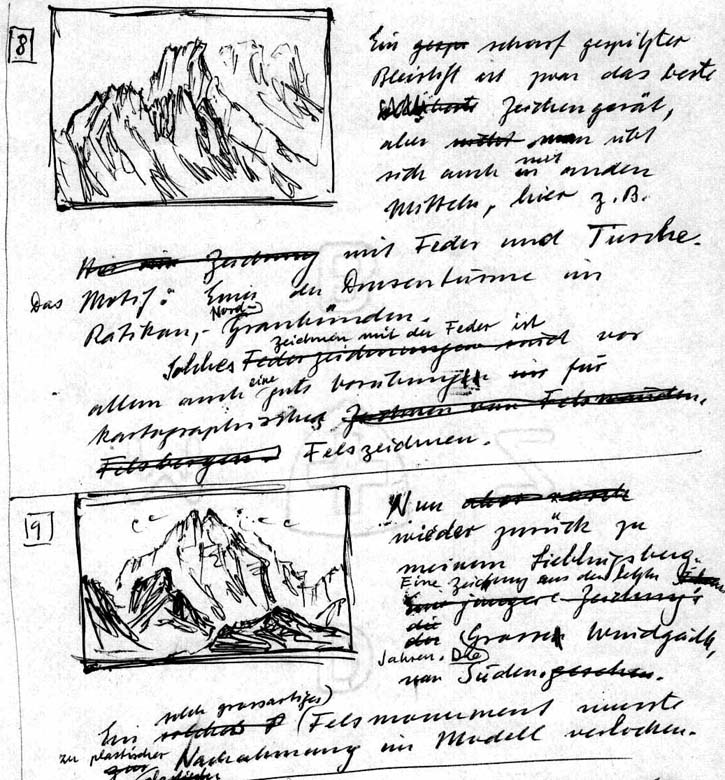 8
Ein scharf gespitzter
Bleistift ist zwar das beste
Zeichengerät,
aber man übt
sich auch mit andern
Mitteln, hier z.B.
Zeichnung mit Feder und Tusche.
Das Motiv: Einer der Drusentürme im
Rätikon, Nord-
Graubünden.
Zeichnen mit der Feder ist
Solches Federzeichnungen sind vor
allem auch eine gute Vorübung für
kartographisches Zeichnen von Felswänden.
Felsbergen. Felszeichnen.
19
Nun aber rasch
wieder zurück zu
meinem Lieblingsberg.
Eine Zeichnung aus den letzten
Eine jüngere Zeichnung
die
der Grossen Windgälle,
Jahren. Die
von Süden gesehen.
solch grossartiges
Ein solches Felsmonument musste
zu plastischer
Nachahmung im Modell verlocken.
plastischer